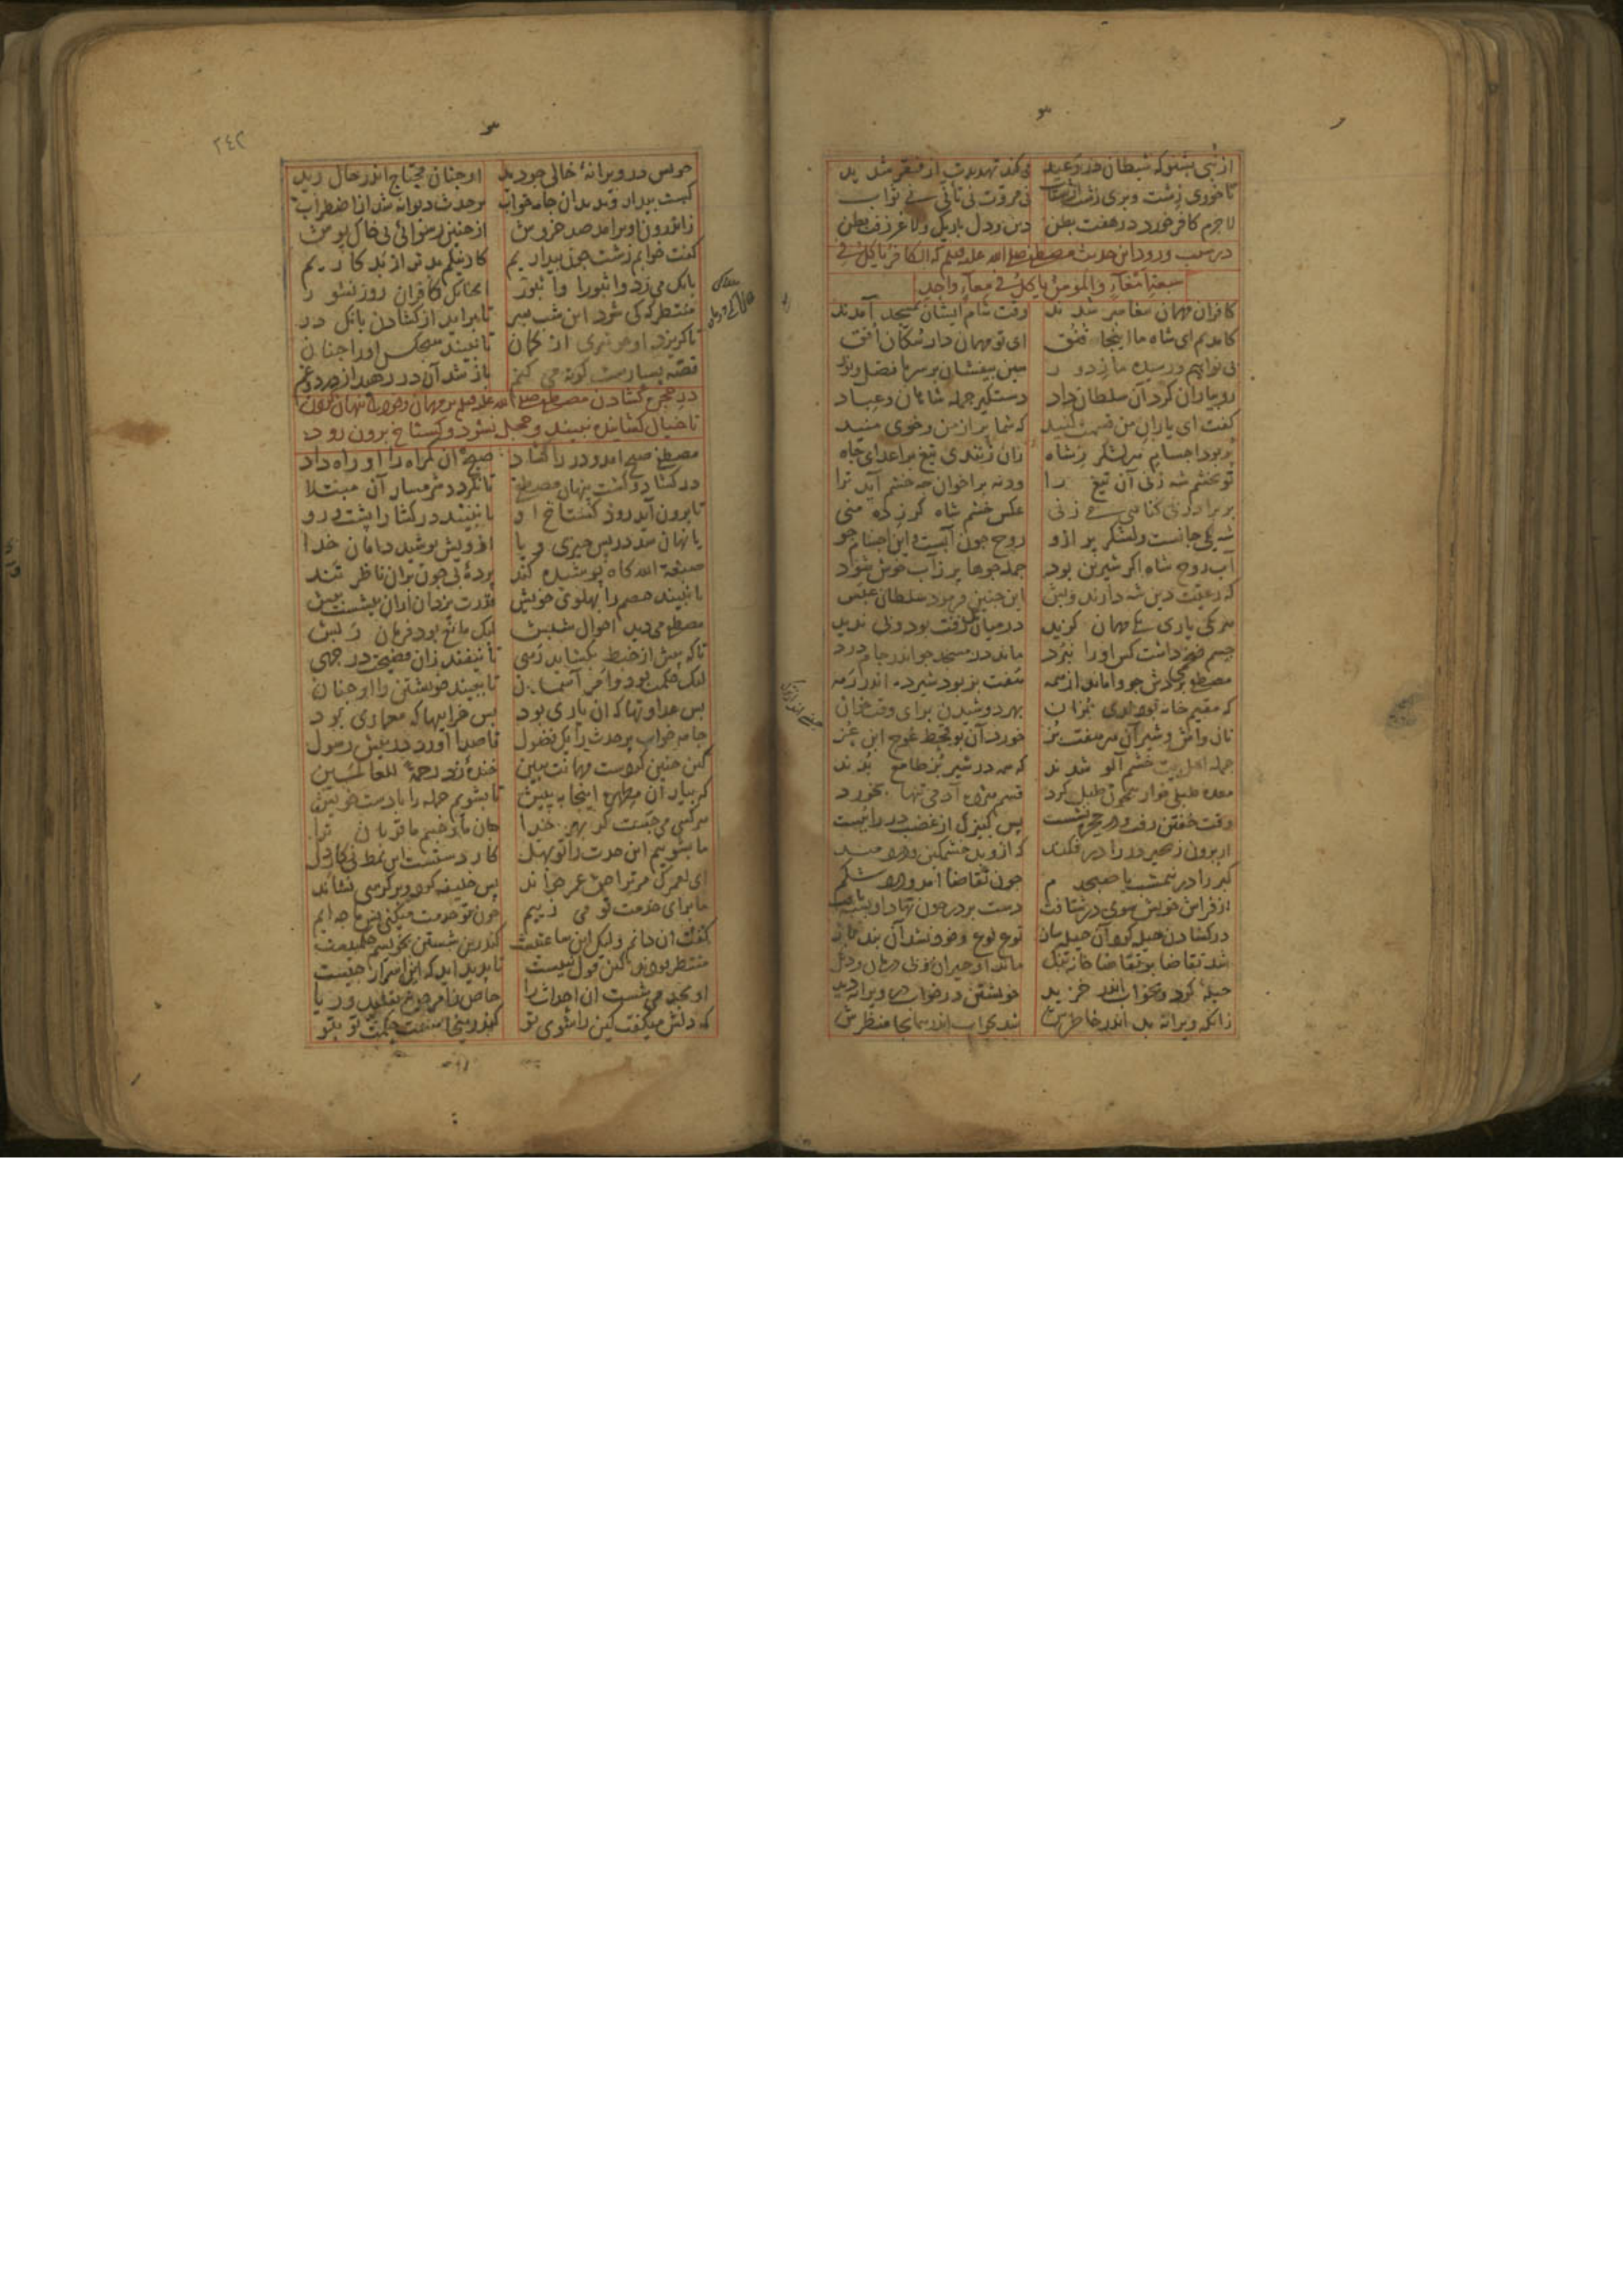 از نبی بشنو که شیطان در وعید می‌کند تهدیدت از فقر شدید
تا خوری زشت و بری زشت از شتاب نی مروت نی تأنی نی ثواب
لاجرم کافر خورد در هفت بطن دین و دل باریک و لاغر زفت بطن
در سبب ورود این حدیث مصطفی صلی الله علیه و سلم که الکافر یأکل فی
سبعة امعاء و المؤمن یأکل فی معاء واحد
کافران مهمان پیغامبر شدند وقت شام ایشان بمسجد آمدند
کامدیم ای شاه ما اینجا قنق ای تو مهماندار سکان افق
بی‌نواییم و رسیده ما ز دور هین بیفشان بر سر ما فضل و نور
رو بیاران کرد آن سلطان داد دستگیر جمله شاهان و عباد
گفت ای یاران من قسمت کنید که شما پر از من و خوی منید
پر بود اجسام هر لشکر ز شاه زان زنندی تیغ بر اعدای جاه
تو بخشم شه زنی آن تیغ را ورنه بر اخوان چه خشم آید ترا
بر برادر بی گناهی می زنی عکس خشم شاه گرز ده منی
شه یکی جانست و لشکر پر ازو روح چون آبست و این اجسام جو
آب روح شاه اگر شیرین بود جمله جوها پر ز آب خوش شود
که رعیت دین شه دارند و بس این چنین فرمود سلطان عبس
هر یکی یاری یکی مهمان گزید در میان یک زفت بود و بی ندید
جسم ضخمی داشت کس او را نبرد ماند در مسجد چو اندر جام درد
مصطفی بردش چو واماند از همه هفت بز بد شیرده اندر رمه
که مقیم خانه بودندی بزان بهر دوشیدن برای وقت خوان
نان و آش و شیر آن هر هفت بز خورد آن بو قحط عوج ابن غز
جمله اهل بیت خشم آلو شدند که همه در شیر بز طامع بدند
معده طبلی خوار همچون طبل کرد قسم هژده آدمی تنها بخورد
وقت خفتن رفت و در حجره نشست پس کنیزک از غضب در را ببست
از برون زنجیر در را در فکند که ازو بد خشمگین و دردمند
گبر را در نیمشب یا صبحدم چون تقاضا آمد و درد شکم
از فراش خویش سوی در شتافت دست بر در چون نهاد او بسته یافت
در گشادن حیله کرد آن حیله ساز نوع نوع و خود نشد آن بند باز
شد تقاضا بر تقاضا خانه تنگ ماند او حیران و بی درمان و دنگ
حیله کرد و بخواب اندر خزید خویشتن در خواب در ویرانه دید
زانکه ویرانه بد اندر خاطرش شد بخواب اندر همانجا منظرش
٢٤٢
خویش در ویرانهٔ خالی چو دید او چنان محتاج اندر حال رید
گشت بیدار و بدید آن جامه خواب پر حدث دیوانه شد از اضطراب
ز اندرون او برآمد صد خروش از چنین رسوائی بی خاک پوش
گفت خوابم زشت چون بیداریم کار نیکم بدتر از بد کاریم
بانک می زد وا ثبورا وا ثبور همچنانک کافران روز نشور
منتظر که کی شود این شب بسر تا برآید از گشادن بانگ در
تا گریزد او چو تیری از کمان تا نبیند هیچکس او را چنان
قصه بسیارست کوته می کنم باز شد آن در رهید از درد و غم
در حجره گشادن مصطفی صلی الله علیه و سلم بر مهمان و خود را پنهان کردن
تا خیال گشاینده نبیند و خجل نشود و گستاخ برون رود
مصطفی صبح آمد و در را گشاد صبح آن گمراه را او راه داد
در گشاد و گشت پنهان مصطفی تا نگردد شرمسار آن مبتلا
تا برون آید رود گستاخ او تا نبیند درگشا را پشت و رو
یا نهان شد در پس چیزی و یا از ویش پوشید دامان خدا
صبغة الله گاه پوشیده کند پردهٔ بی چون بران ناظر تند
تا نبیند خصم را پهلوی خویش قدرت یزدان از آن بیشست بیش
مصطفی می دید احوال شبش لیک مانع بود فرمان ربش
تا که پیش از خبط بگشاید رهی تا نیفتد زان فضیحت در چهی
لیک حکمت بود و امر آسمان تا ببیند خویشتن را او چنان
بس عداوتها که آن یاری بود بس خرابیها که معماری بود
جامه خواب پر حدث را یک فضول قاصدا آورد در پیش رسول
که چنین کردست مهمانت ببین خندهٔ زد رحمة للعالمین
که بیار آن مطهره اینجا به پیش تا بشویم جمله را با دست خویش
هر کسی می جست کز بهر خدا جان ما و جسم ما قربان ترا
ما بشوییم این حدث را تو بهل کار دستست این نمط نی کار دل
ای لعمرک مر ترا حق عمر خواند پس خلیفه کرد و بر کرسی نشاند
ما برای خدمت تو می زییم چون تو خدمت میکنی پس ما چه ایم
گفت آن دانم و لیک این ساعتیست که درین شستن بخویشم حکمتیست
منتظر بودند کین قول نبیست تا پدید آید که این اسرار چیست
او بجد می شست آن احداث را خاص ز امر حق نه تقلید و ریا
که دلش میگفت کین را تو بشو که درینجا هست حکمت تو بتو